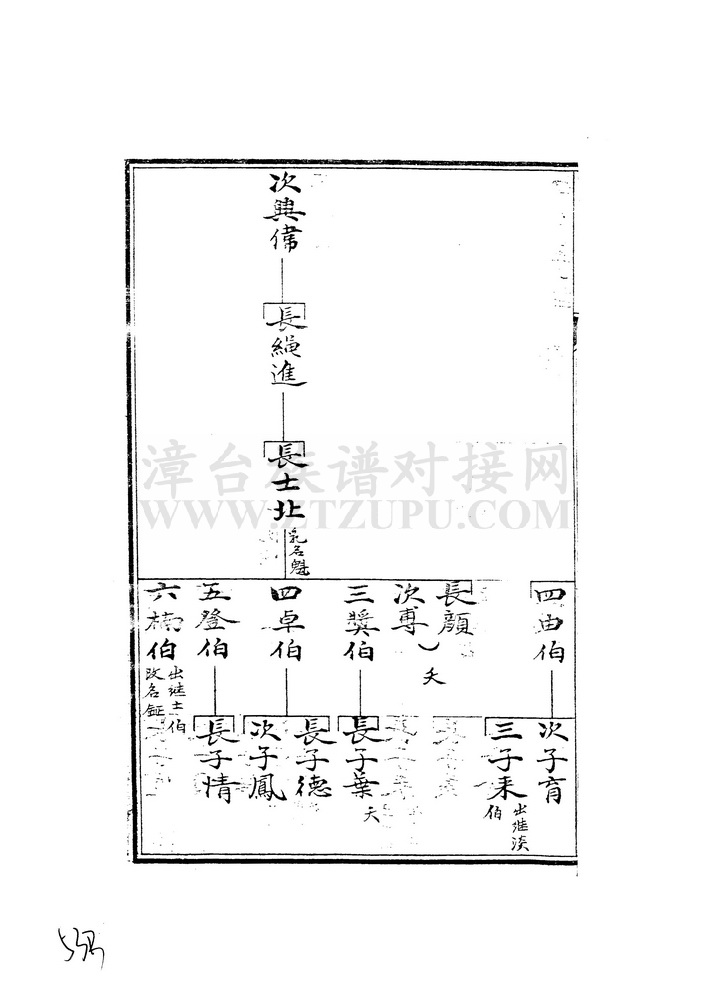 次興偉
長繩進
長士北
乳名魁
四由伯
次子育
三子来
出继淡伯
長顔
次專
夭
三奬伯
長子葉
夭
四卓伯
長子德
次子鳳
五登伯
長子情
六楠伯
出继士伯
改名鉦
漳台族谱对接网
WWW.ZTZUPU.COM